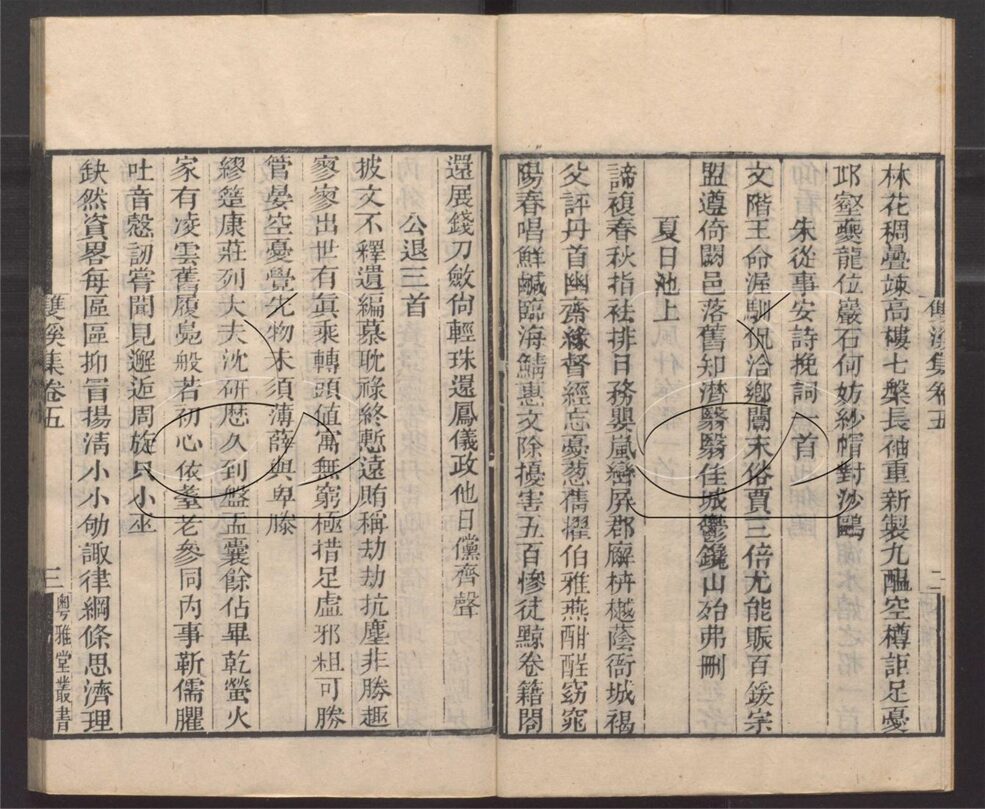 雙溪集卷五
二
林花稠疊竦高樓七槃長袖重新製九醞空樽詎足憂
邛壑夔龍位巖石何妨紗帽對沙鷗
朱從事安詩挽詞一首
文階王命渥馴恱洽鄉關末俗賈三倍尤能賑百鍰宗
盟遵倚閭邑落舊知潸翳翳佳城鬱鑱山殆弗刪
夏日池上
諦複春秋指袪排日務嬰嵐巒屏郡廨枿樾蔭衙城褐
父評丹首幽齋緣督經忘憂葱舊擢伯雅燕酣酲窈窕
陽春唱鮮鹹臨海鯖惠文除擾害五百慘徒黥卷籍閤
還展錢刀斂尙輕珠還鳳儀政他日儻齊聲
公退三首
披文不釋遺編慕耽祿終慙遠賄稱劫劫抗塵非勝趣
寥寥出世有眞乘轉頭値寓無窮極措足虛邪粗可勝
管晏空憂覺先物未須薄薛與卑滕
繆蹵康莊列大夫沈研歷久到盤盂囊餘佔畢乾螢火
家有凌雲舊履鳧般若初心依耋老參同內事靳儒臞
吐音慤訒嘗聞見邂近周旋只小巫
缺然資畧每區區抑冐揚淸小小劬諏律綱條思濟理
雙溪集卷五
三
粵雅堂叢書